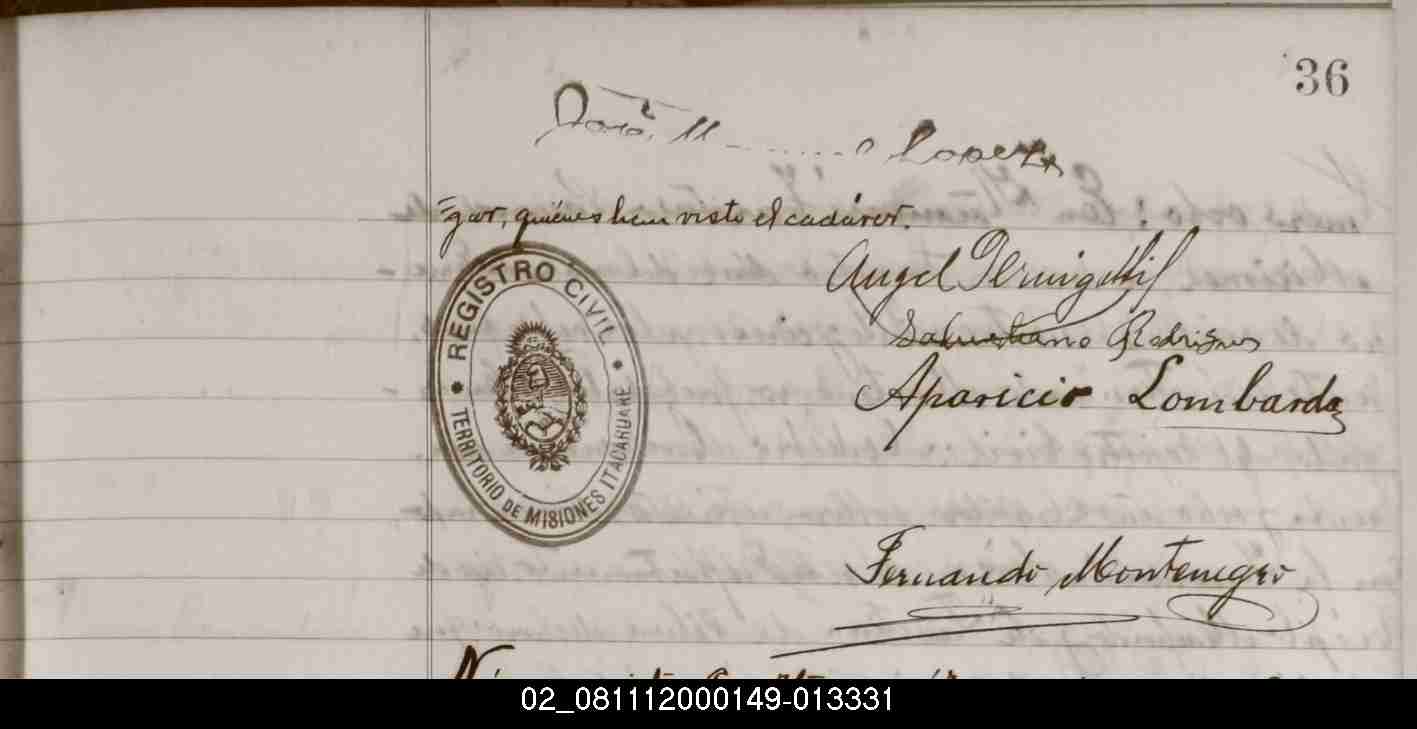 36
José M Lopez
=gar, quiénes han visto el cadáver.
REGISTRO CIVIL
TERRITORIO DE MISIONES ITACARUARÉ
Angel
Salustiano Rodrigues
Aparicio Lombarda
Fernando Montenegro
02_081112000149-013331